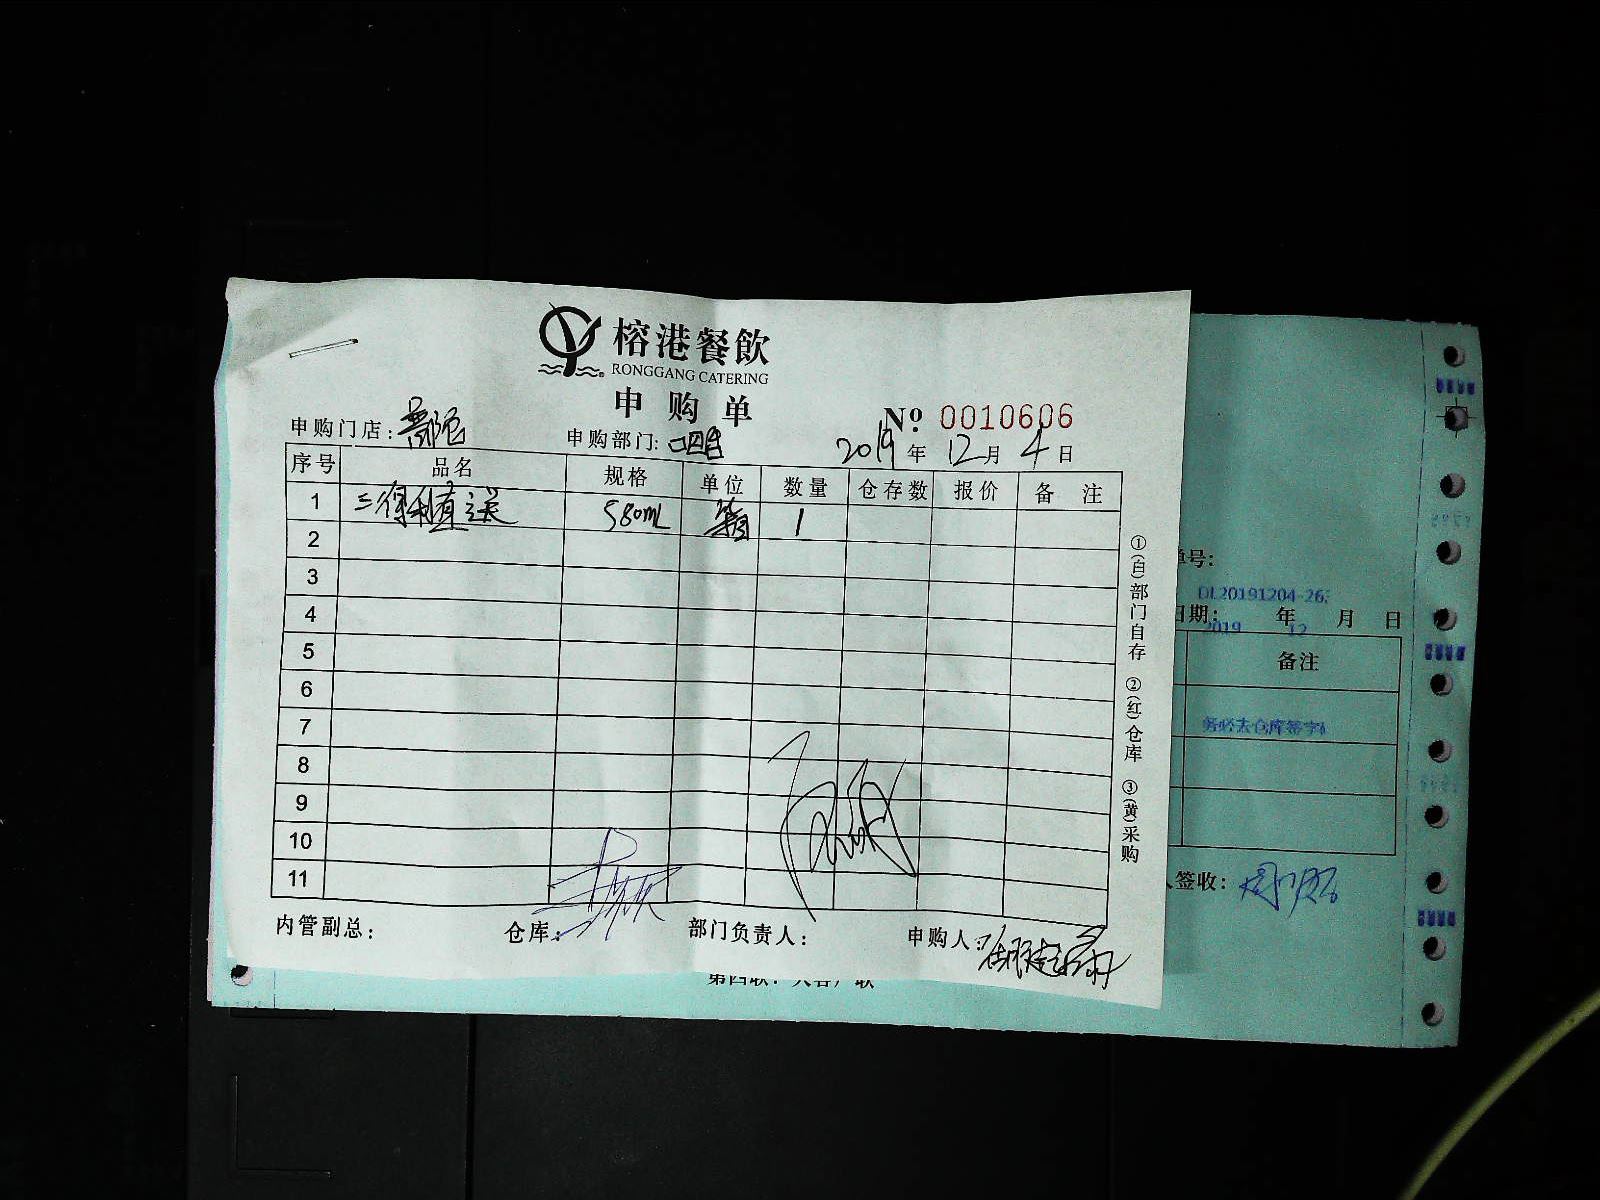 榕港餐飲
RONGGANG CATERING
申购单
№ 0010606
申购门店:
申购部门: 吧台
2019 年 12 月 4 日
序号 品名 规格 单位 数量 仓存数 报价 备 注
1 三得利直送 580mL 箱 1
2
3
4
5
6
7
8
9
10
11
内管副总: 仓库: 部门负责人: 申购人:
①(白)部门自存 ②(红)仓库 ③(黄)采购
单号:
DL20191204-26
日期: 年 月 日
2019 12
备注
务必去仓库签字
签收: